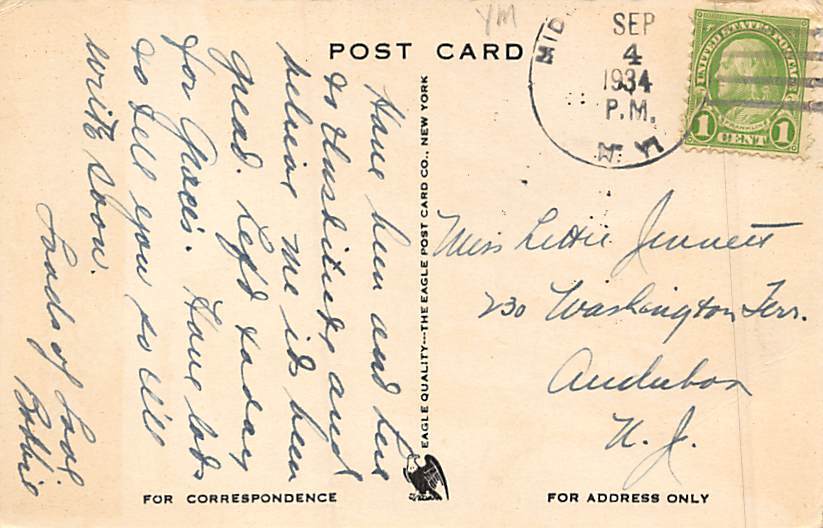 YM
POST CARD
MID
SEP
4
1934
P.M.
N.Y.
UNITED STATES POSTAGE
FRANKLIN
1 CENT 1
Have been and
to and
believe me its been
great. Left today
for Grace's. Have lots
to tell you so will
write soon.
Loads of Love
Bobbie
EAGLE QUALITY---THE EAGLE POST CARD CO., NEW YORK
Miss Lettie Jennett
230 Washington Terr.
Audubon
N. J.
FOR CORRESPONDENCE
FOR ADDRESS ONLY